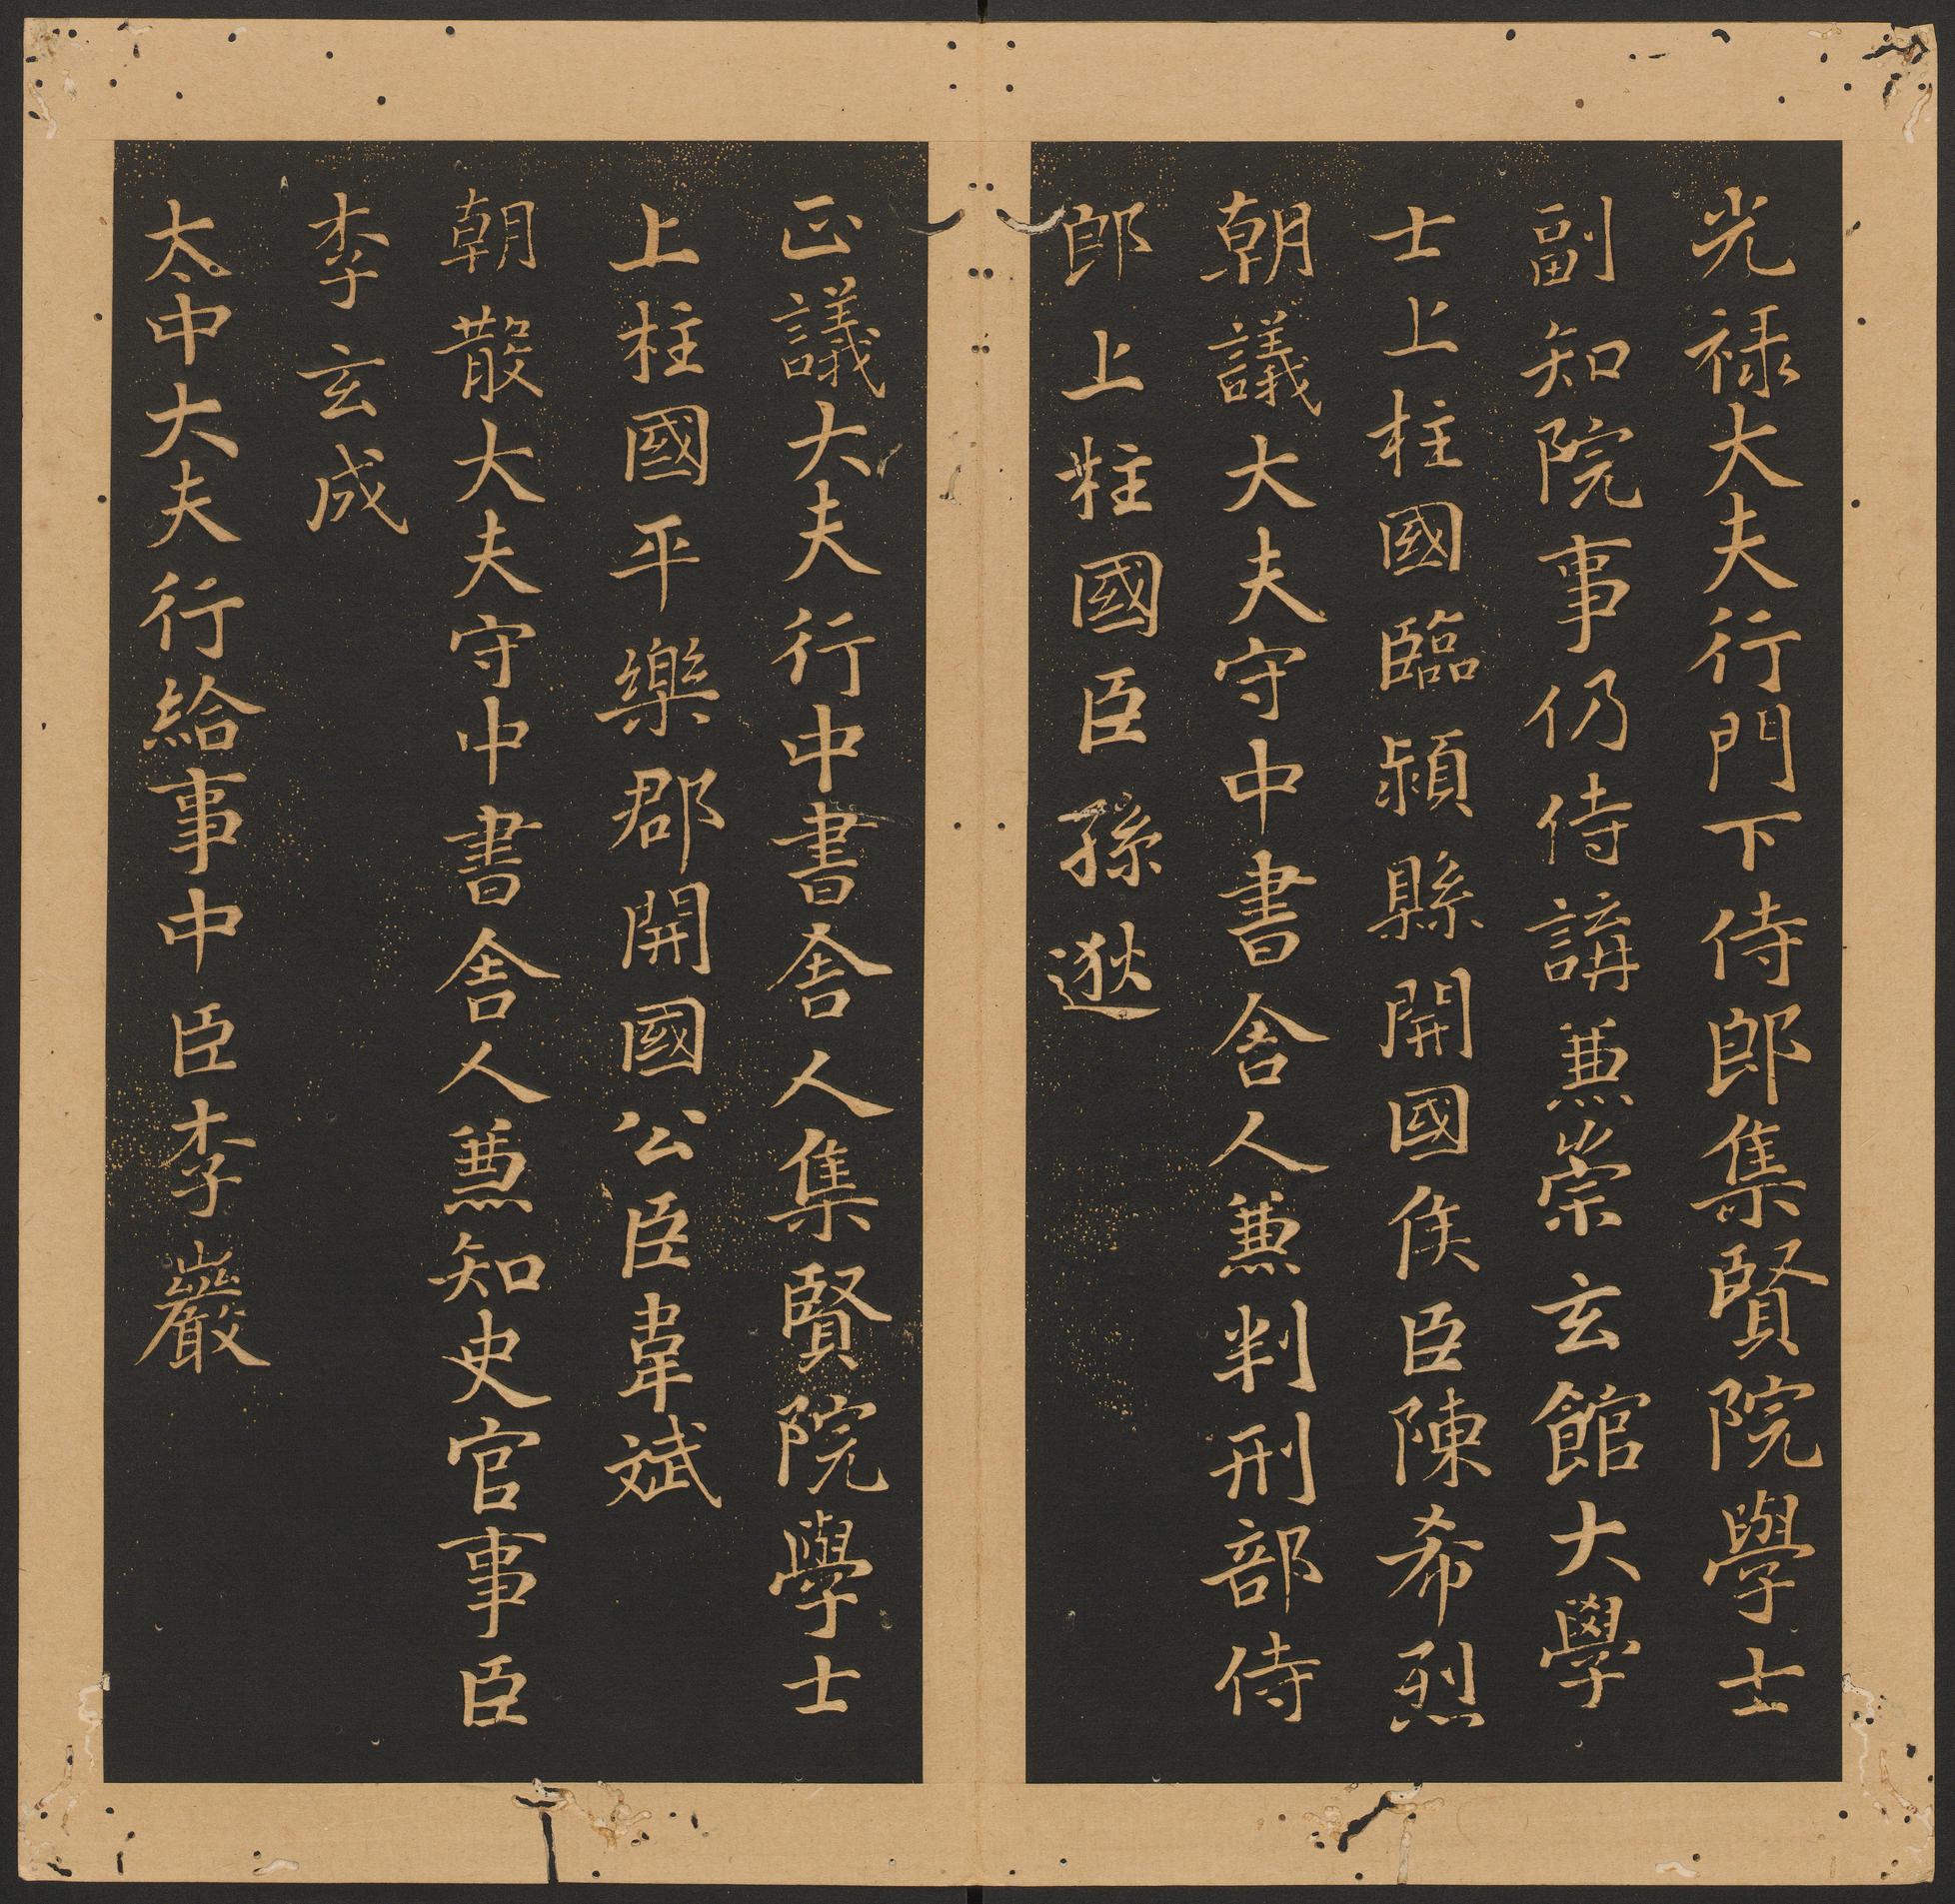 光祿大夫行門下侍郎集賢院學士
副知院事仍侍講兼崇玄館大學
士上柱國臨潁縣開國侯臣陳希烈
朝議大夫守中書舍人兼判刑部侍
郎上柱國臣孫逖
正議大夫行中書舍人集賢院學士
上柱國平樂郡開國公臣韋斌
朝散大夫守中書舍人兼知史官事臣
李玄成
太中大夫行給事中臣李巖